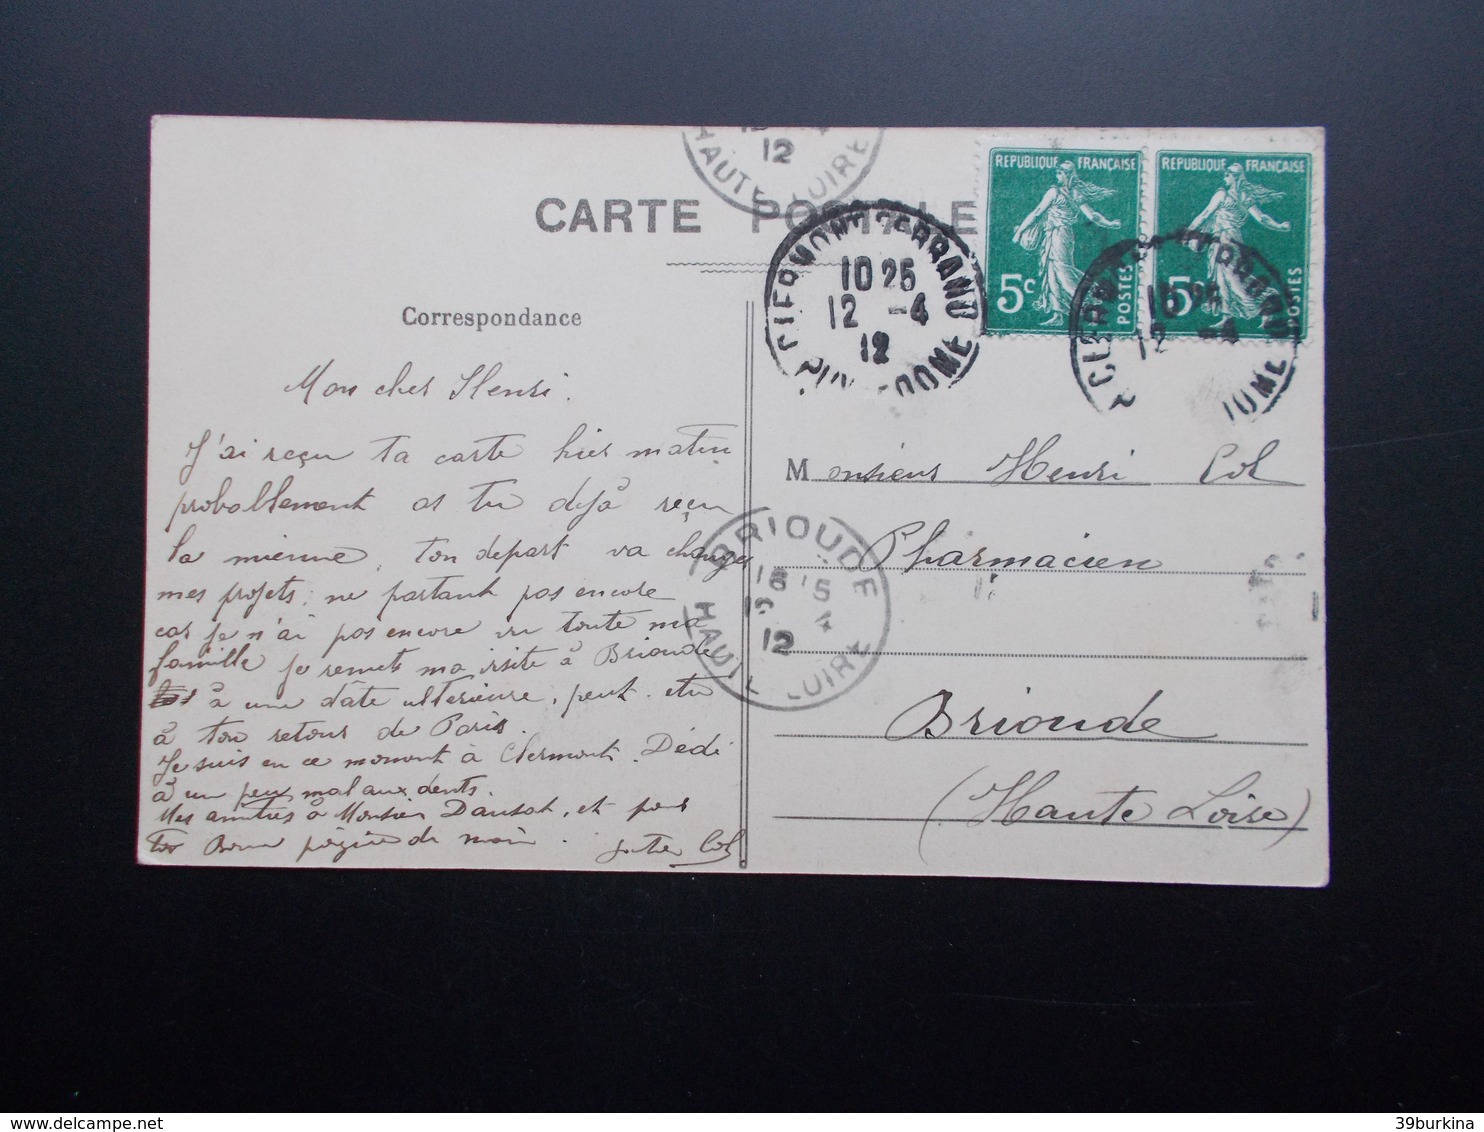 12
HAUTE-LOIRE
CARTE POSTALE
CLERMONT-FERRAND
10 25
12 -4
12
PUY DE DOME
REPUBLIQUE FRANÇAISE
5c
POSTES
REPUBLIQUE FRANÇAISE
5c
POSTES
10 25
12 -4
Correspondance
Mon cher Henri.
J'ai reçu ta carte hier matin
probablement as tu dejà reçu
la mienne, ton depart va changer
mes projets, ne partant pas encore
car je n'ai pas encore vu toute ma
famille je remets ma visite à Brioude
à une date ulterieure, peut etre
à ton retour de Paris.
Je suis en ce moment à Clermont. Dédé
à un peu mal aux dents.
Mes amitiés à Monsieur Dausat, et pour
toi Bonne poignée de main. Col
Monsieur Henri Col
Pharmacien
Brioude
(Haute Loire)
BRIOUDE
16 15
12 4
12
HAUTE LOIRE
39burkina